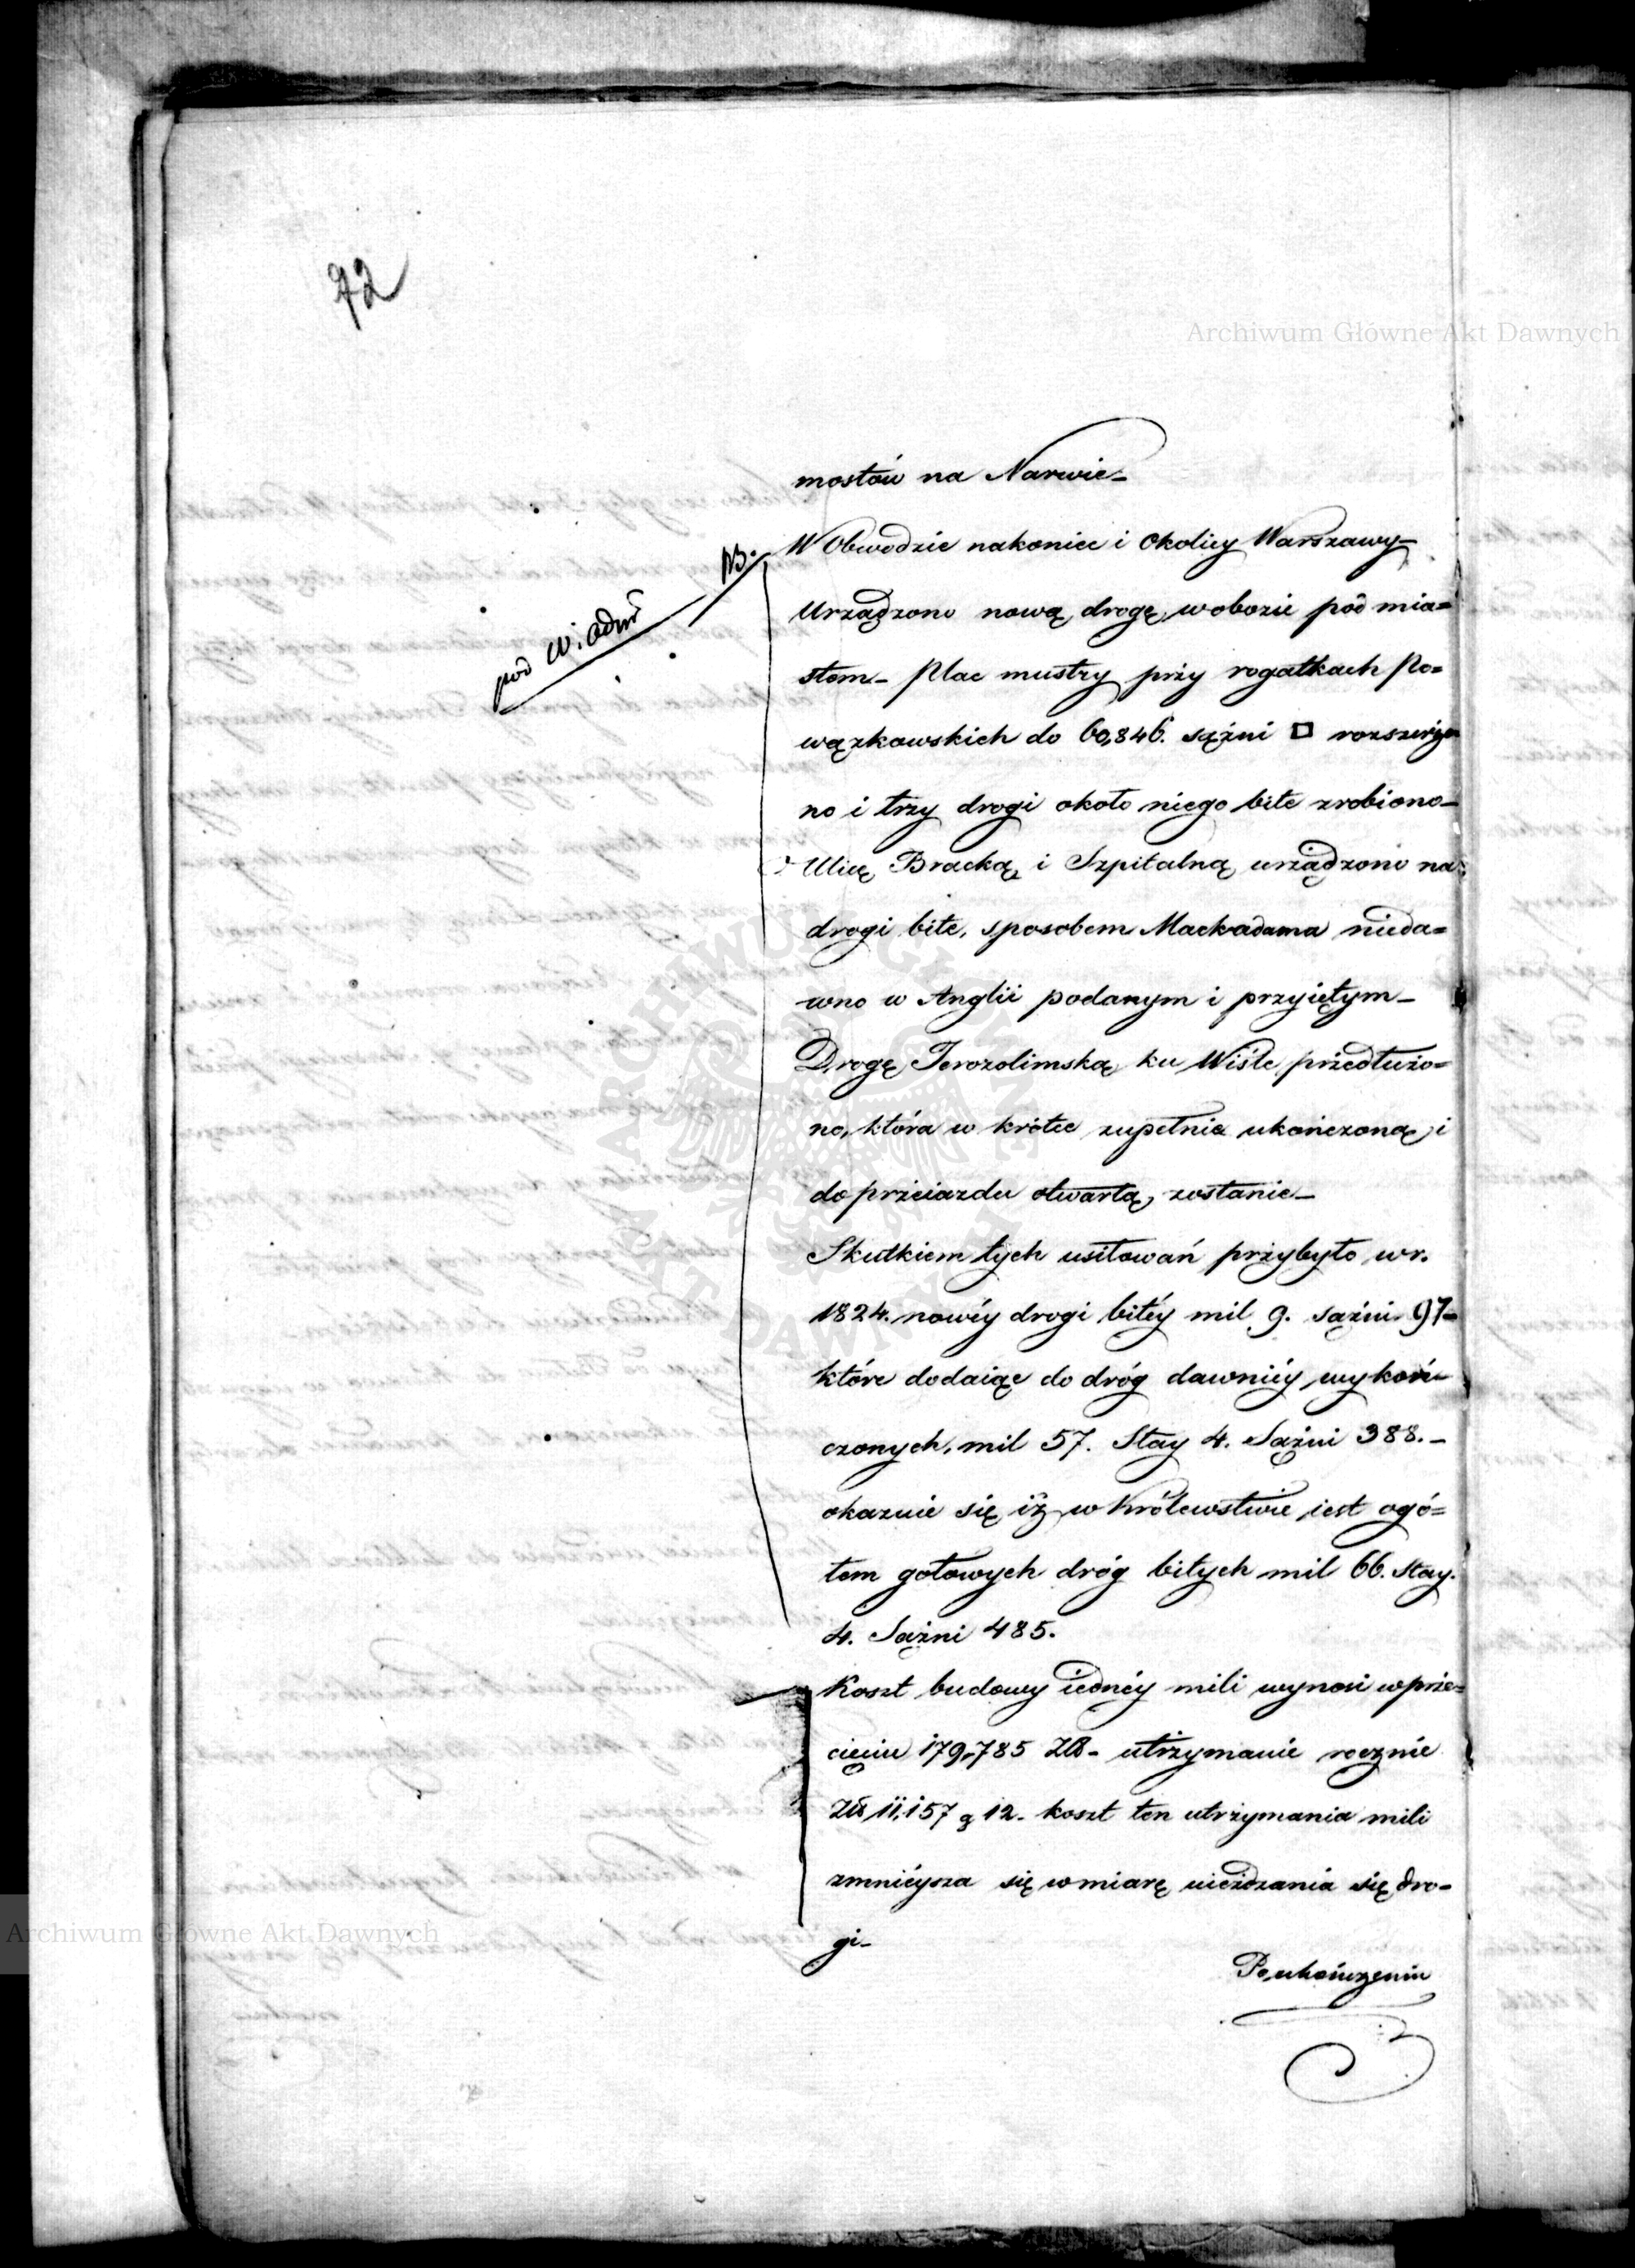 72
Archiwum Główne Akt Dawnych
mostów na Narwie_
NB.
pod
W Obwodzie nakoniec i Okolicy Warszawy_
Urządzono nową drogę w obozie pod mia=
stem_ Plac mustry przy rogatkach Po=
wązkowskich do 60,846. sążni □ rozszerzo=
no i trzy drogi około niego bite zrobiono_
Ulicę Bracką i Szpitalną urządzono na
drogi bite, sposobem Mackadama nieda=
wno w Anglii podanym i przyiętym_
Drogę Jerozolimską ku Wiśle przedłużo=
no, która w krótce zupełnie ukończoną i
do przeiazdu otwartą zostanie_
Skutkiem tych usiłowań przybyło w r.
1824. nowéy drogi bitéy mil 9. sążni 97_
które dodaiąc do dróg dawniéy wykoń=
czonych, mil 57. Stay 4. Sążni 388._
okazuie się iż w Królewstwie iest ogó=
łem gotowych dróg bitych mil 66. Stay.
4. Sążni 485.
Koszt budowy iednéy mili wynosi w prze=
cięciu 179,785 Zł_ utrzymanie rocznie
Zł 11,157 g 12_ koszt ten utrzymania mili
zmnieysza się w miarę uieżdzania się dro=
gi_
Po ukończeniu
Archiwum Główne Akt Dawnych
ARCHIWUM GŁÓWNE AKT DAWNYCH